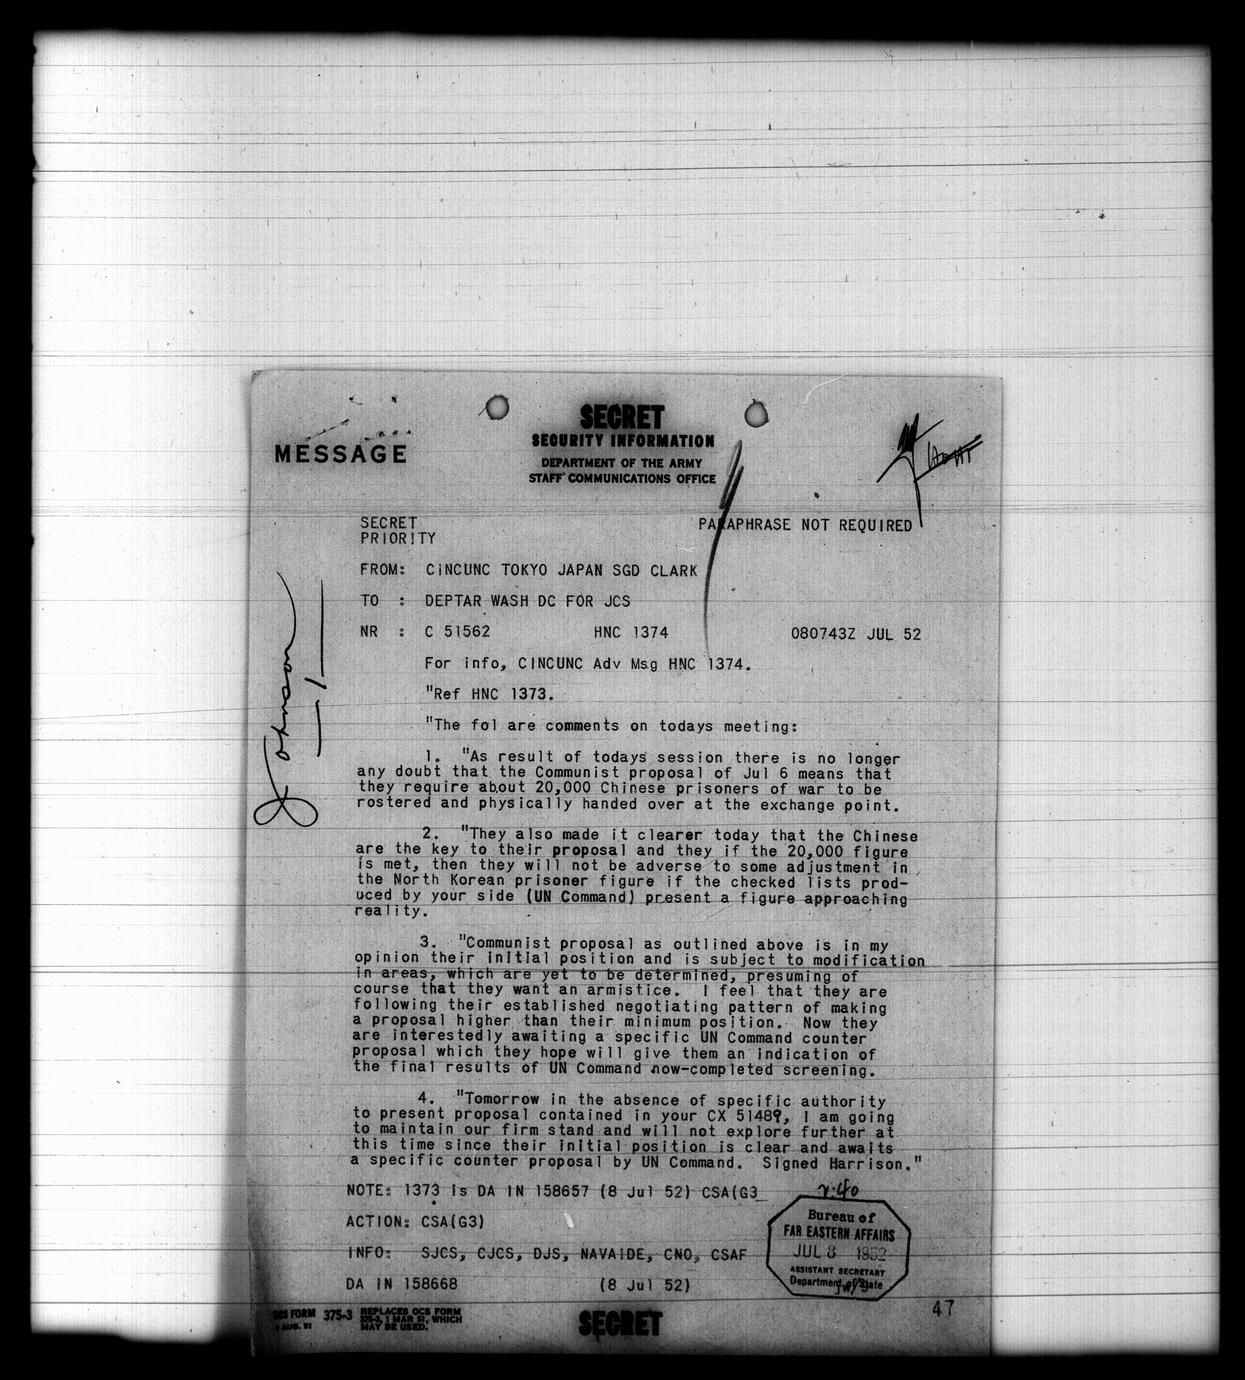 SECRET
SECURITY INFORMATION
MESSAGE
DEPARTMENT OF THE ARMY
STAFF COMMUNICATIONS OFFICE
SECRET PARAPHRASE NOT REQUIRED
PRIORITY
FROM: CINCUNC TOKYO JAPAN SGD CLARK
TO : DEPTAR WASH DC FOR JCS
NR : C 51562 HNC 1374 080743Z JUL 52
For info, CINCUNC Adv Msg HNC 1374.
"Ref HNC 1373.
"The fol are comments on todays meeting:
1. "As result of todays session there is no longer
any doubt that the Communist proposal of Jul 6 means that
they require about 20,000 Chinese prisoners of war to be
rostered and physically handed over at the exchange point.
2. "They also made it clearer today that the Chinese
are the key to their proposal and they if the 20,000 figure
is met, then they will not be adverse to some adjustment in
the North Korean prisoner figure if the checked lists prod-
uced by your side (UN Command) present a figure approaching
reality.
3. "Communist proposal as outlined above is in my
opinion their initial position and is subject to modification
in areas, which are yet to be determined, presuming of
course that they want an armistice. I feel that they are
following their established negotiating pattern of making
a proposal higher than their minimum position. Now they
are interestedly awaiting a specific UN Command counter
proposal which they hope will give them an indication of
the final results of UN Command now-completed screening.
4. "Tomorrow in the absence of specific authority
to present proposal contained in your CX 51489, I am going
to maintain our firm stand and will not explore further at
this time since their initial position is clear and awaits
a specific counter proposal by UN Command. Signed Harrison."
NOTE: 1373 is DA IN 158657 (8 Jul 52) CSA(G3
ACTION: CSA(G3)
INFO: SJCS, CJCS, DJS, NAVAIDE, CNO, CSAF
DA IN 158668 (8 Jul 52)
Bureau of
FAR EASTERN AFFAIRS
JUL 8 1952
ASSISTANT SECRETARY
Department of State
47
OCS FORM 375-3 REPLACES OCS FORM
1 AUG. 51 375-3, 1 MAR 51, WHICH
MAY BE USED.
SECRET
Johnson